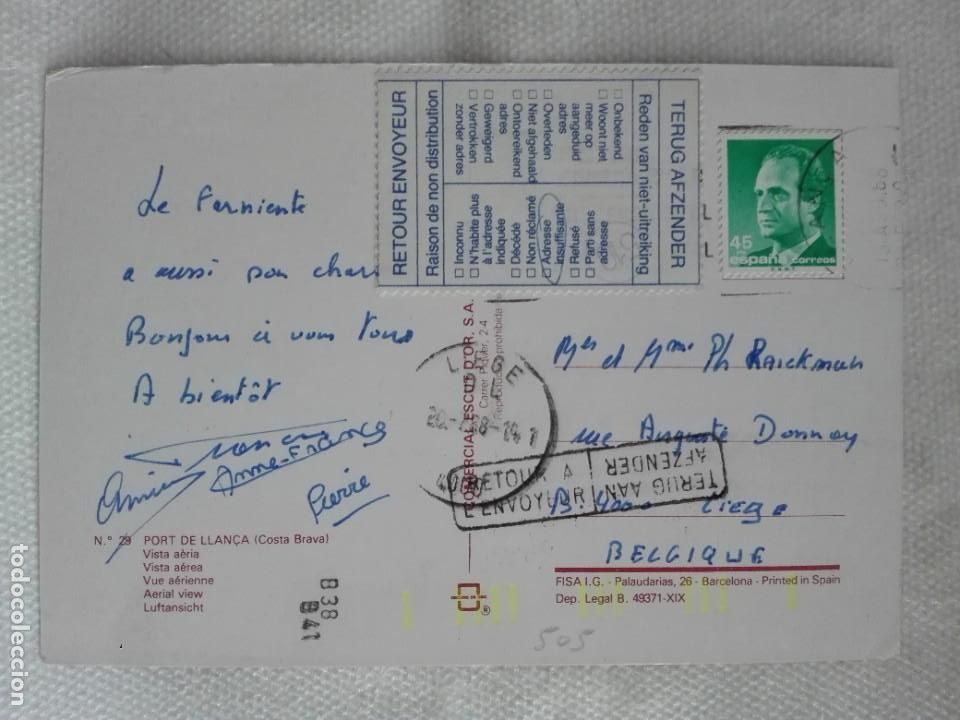 Le farniente
a aussi son
Bonjour à vous tous
A bientôt
Anne-France
Pierre
N.° 29 PORT DE LLANÇA (Costa Brava)
Vista aèria
Vista aérea
Vue aérienne
Aerial view
Luftansicht
B38
B41
RETOUR ENVOYEUR
Raison de non distribution
☐ Inconnu
☐ N'habite plus
à l'adresse
indiquée
☐ Décédé
☐ Non réclamé
☐ Adresse
insuffisante
☐ Refusé
☐ Parti sans
adresse
TERUG AFZENDER
Reden van niet-uitreiking
☐ Onbekend
☐ Woont niet
meer op
aangeduid
adres
☐ Overleden
☐ Niet afgehaald
☐ Ontoereikend
adres
☐ Geweigerd
☐ Vertrokken
zonder adres
45
españa correos
COMERCIAL ESCUT D'OR, S.A.
Reproducción prohibida
LIEGE
RETOUR A
L'ENVOYEUR
TERUG AAN
AFZENDER
Mr et Mme Ph Raickman
rue Auguste Donnay
B. 4000 Liège
BELGIQUE
FISA I.G. - Palaudarias, 26 - Barcelona - Printed in Spain
Dep. Legal B. 49371-XIX
505
todocoleccion.net